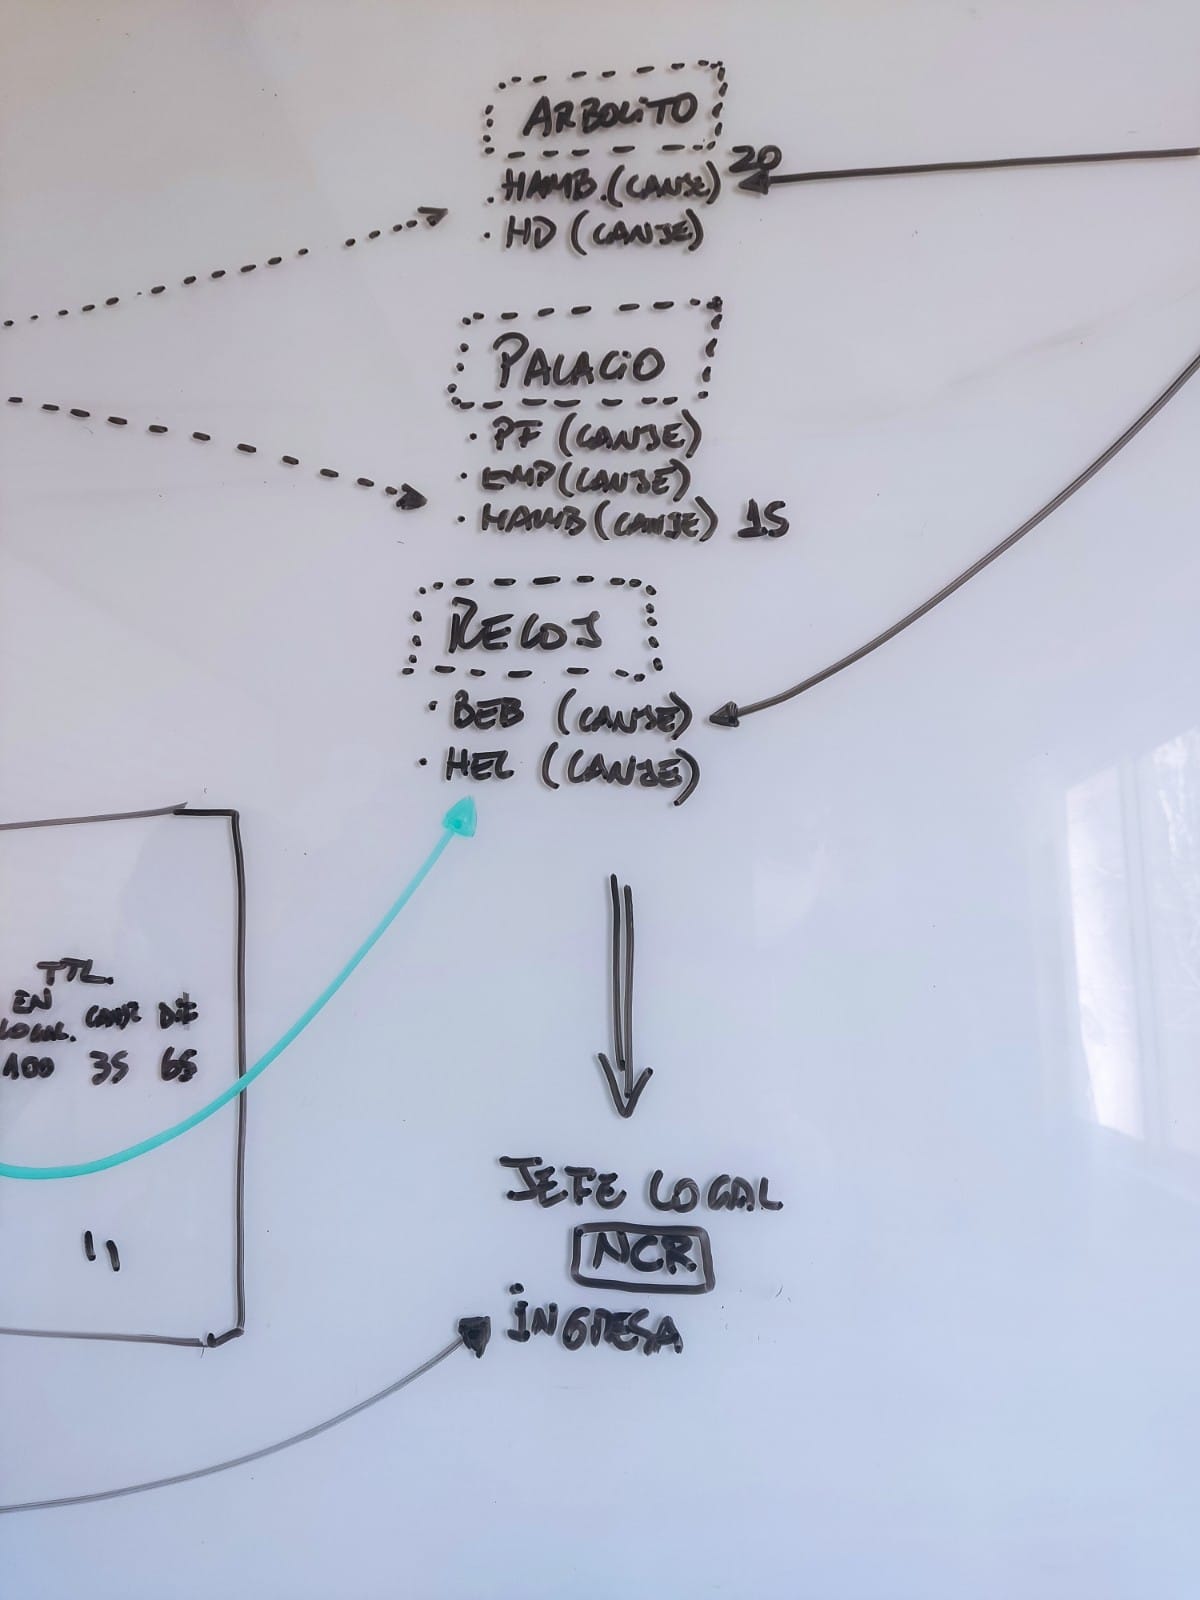 ARBOLITO
· HAMB. (CANJE) 20
· HD (CANJE)
PALACIO
· PF (CANJE)
· EMP (CANJE)
· HAMB (CANJE) 15
RELOJ
· BEB (CANJE)
· HEL (CANJE)
TTL.
EN
LOCAL. CANJE DIF
100 35 65
"
JEFE LOCAL
NCR
INGRESA